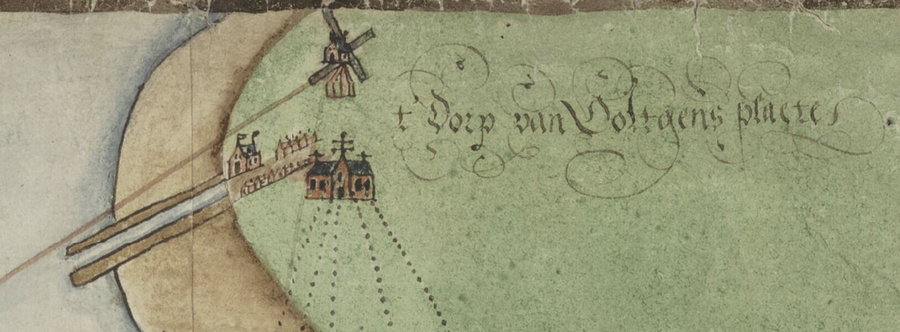 t' Dorp van Voltgens plaete